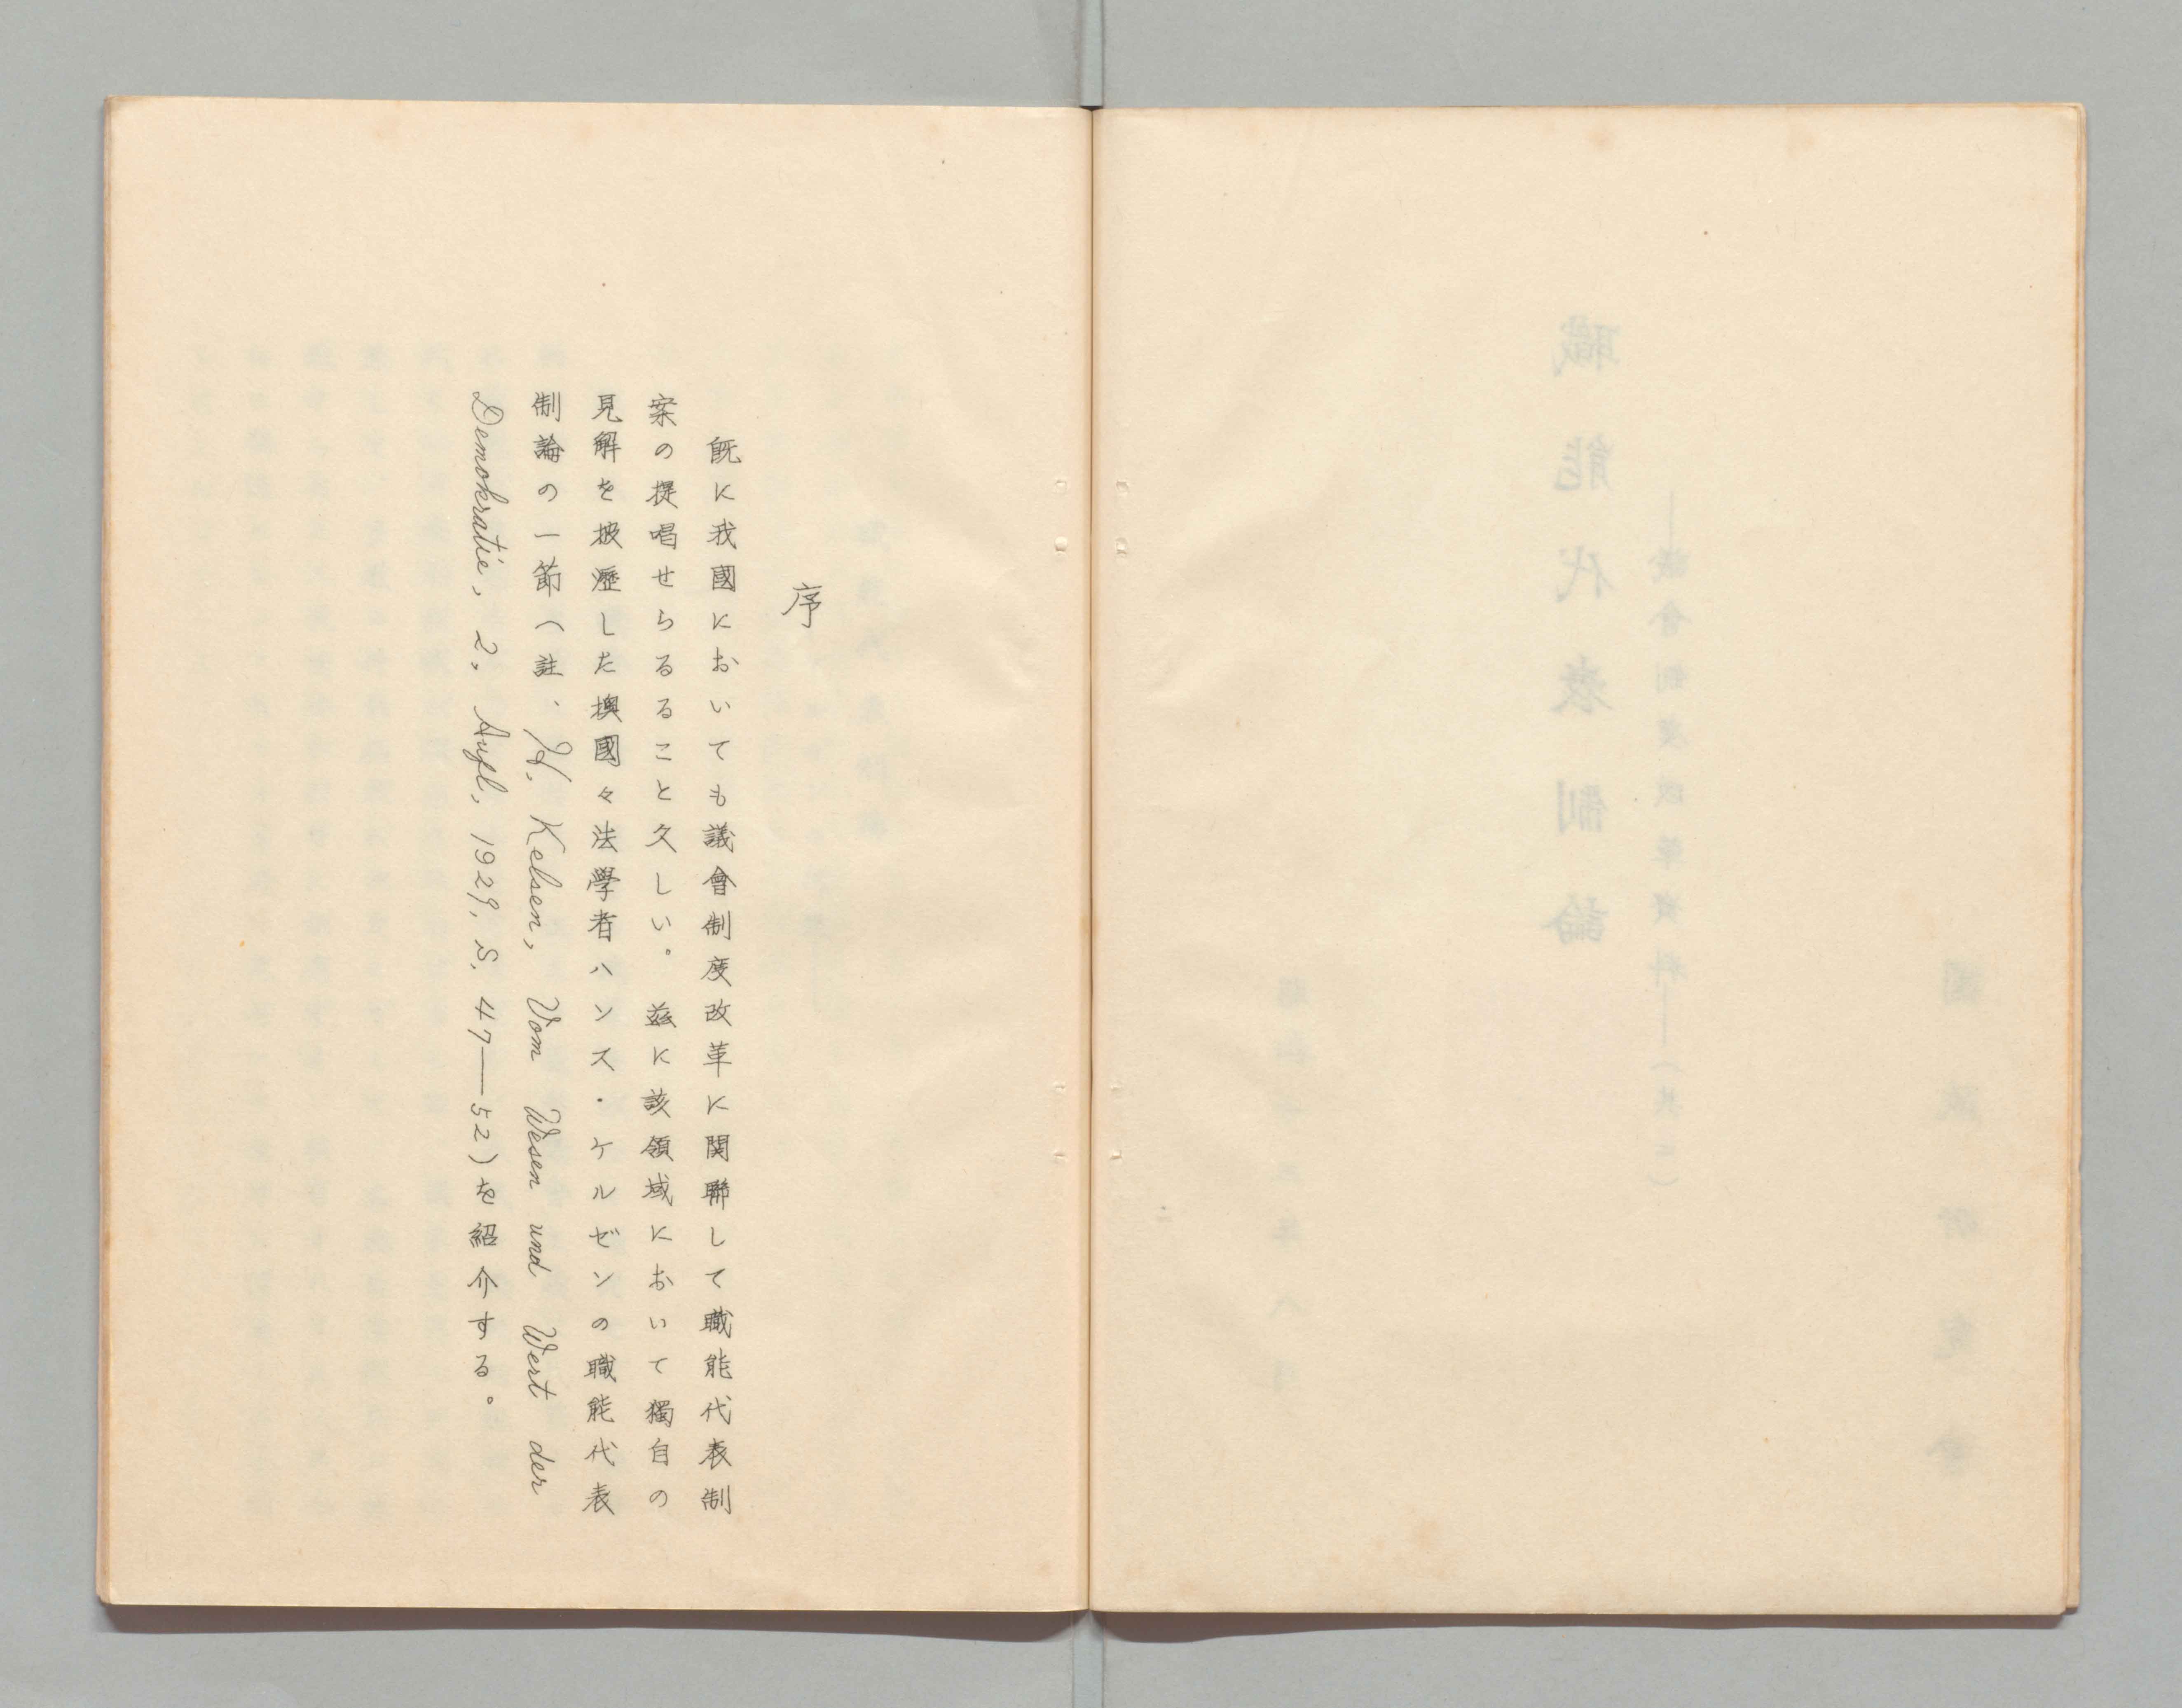 序
既に我國においても議會制度改革に関聯して職能代表制
案の提唱せらるること久しい。茲に該領域において獨自の
見解を披瀝した墺國々法學者ハンス・ケルゼンの職能代表
制論の一節（註．H. Kelsen, Vom Wesen und Wert der
Demokratie, 2, Aufl, 1929, S. 47——52）を紹介する。